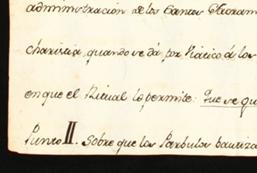 administracion de los Santos Sacram
charistia, quando se dá por Viatico á los
en que el Ritual lo permite. Que se qu
Punto II. Sobre que los Parbulos bautiza